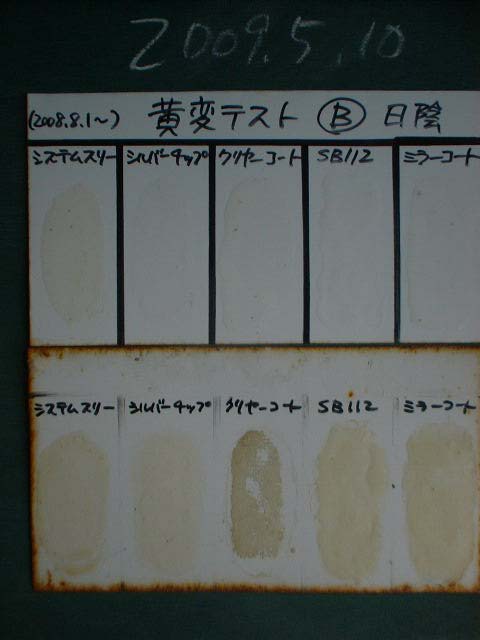 2009.5.10
(2008.8.1～) 黄変テスト Ⓑ 日陰
システムスリー シルバーチップ クリヤーコート SB112 ミラーコート
システムスリー シルバーチップ クリヤーコート SB112 ミラーコート